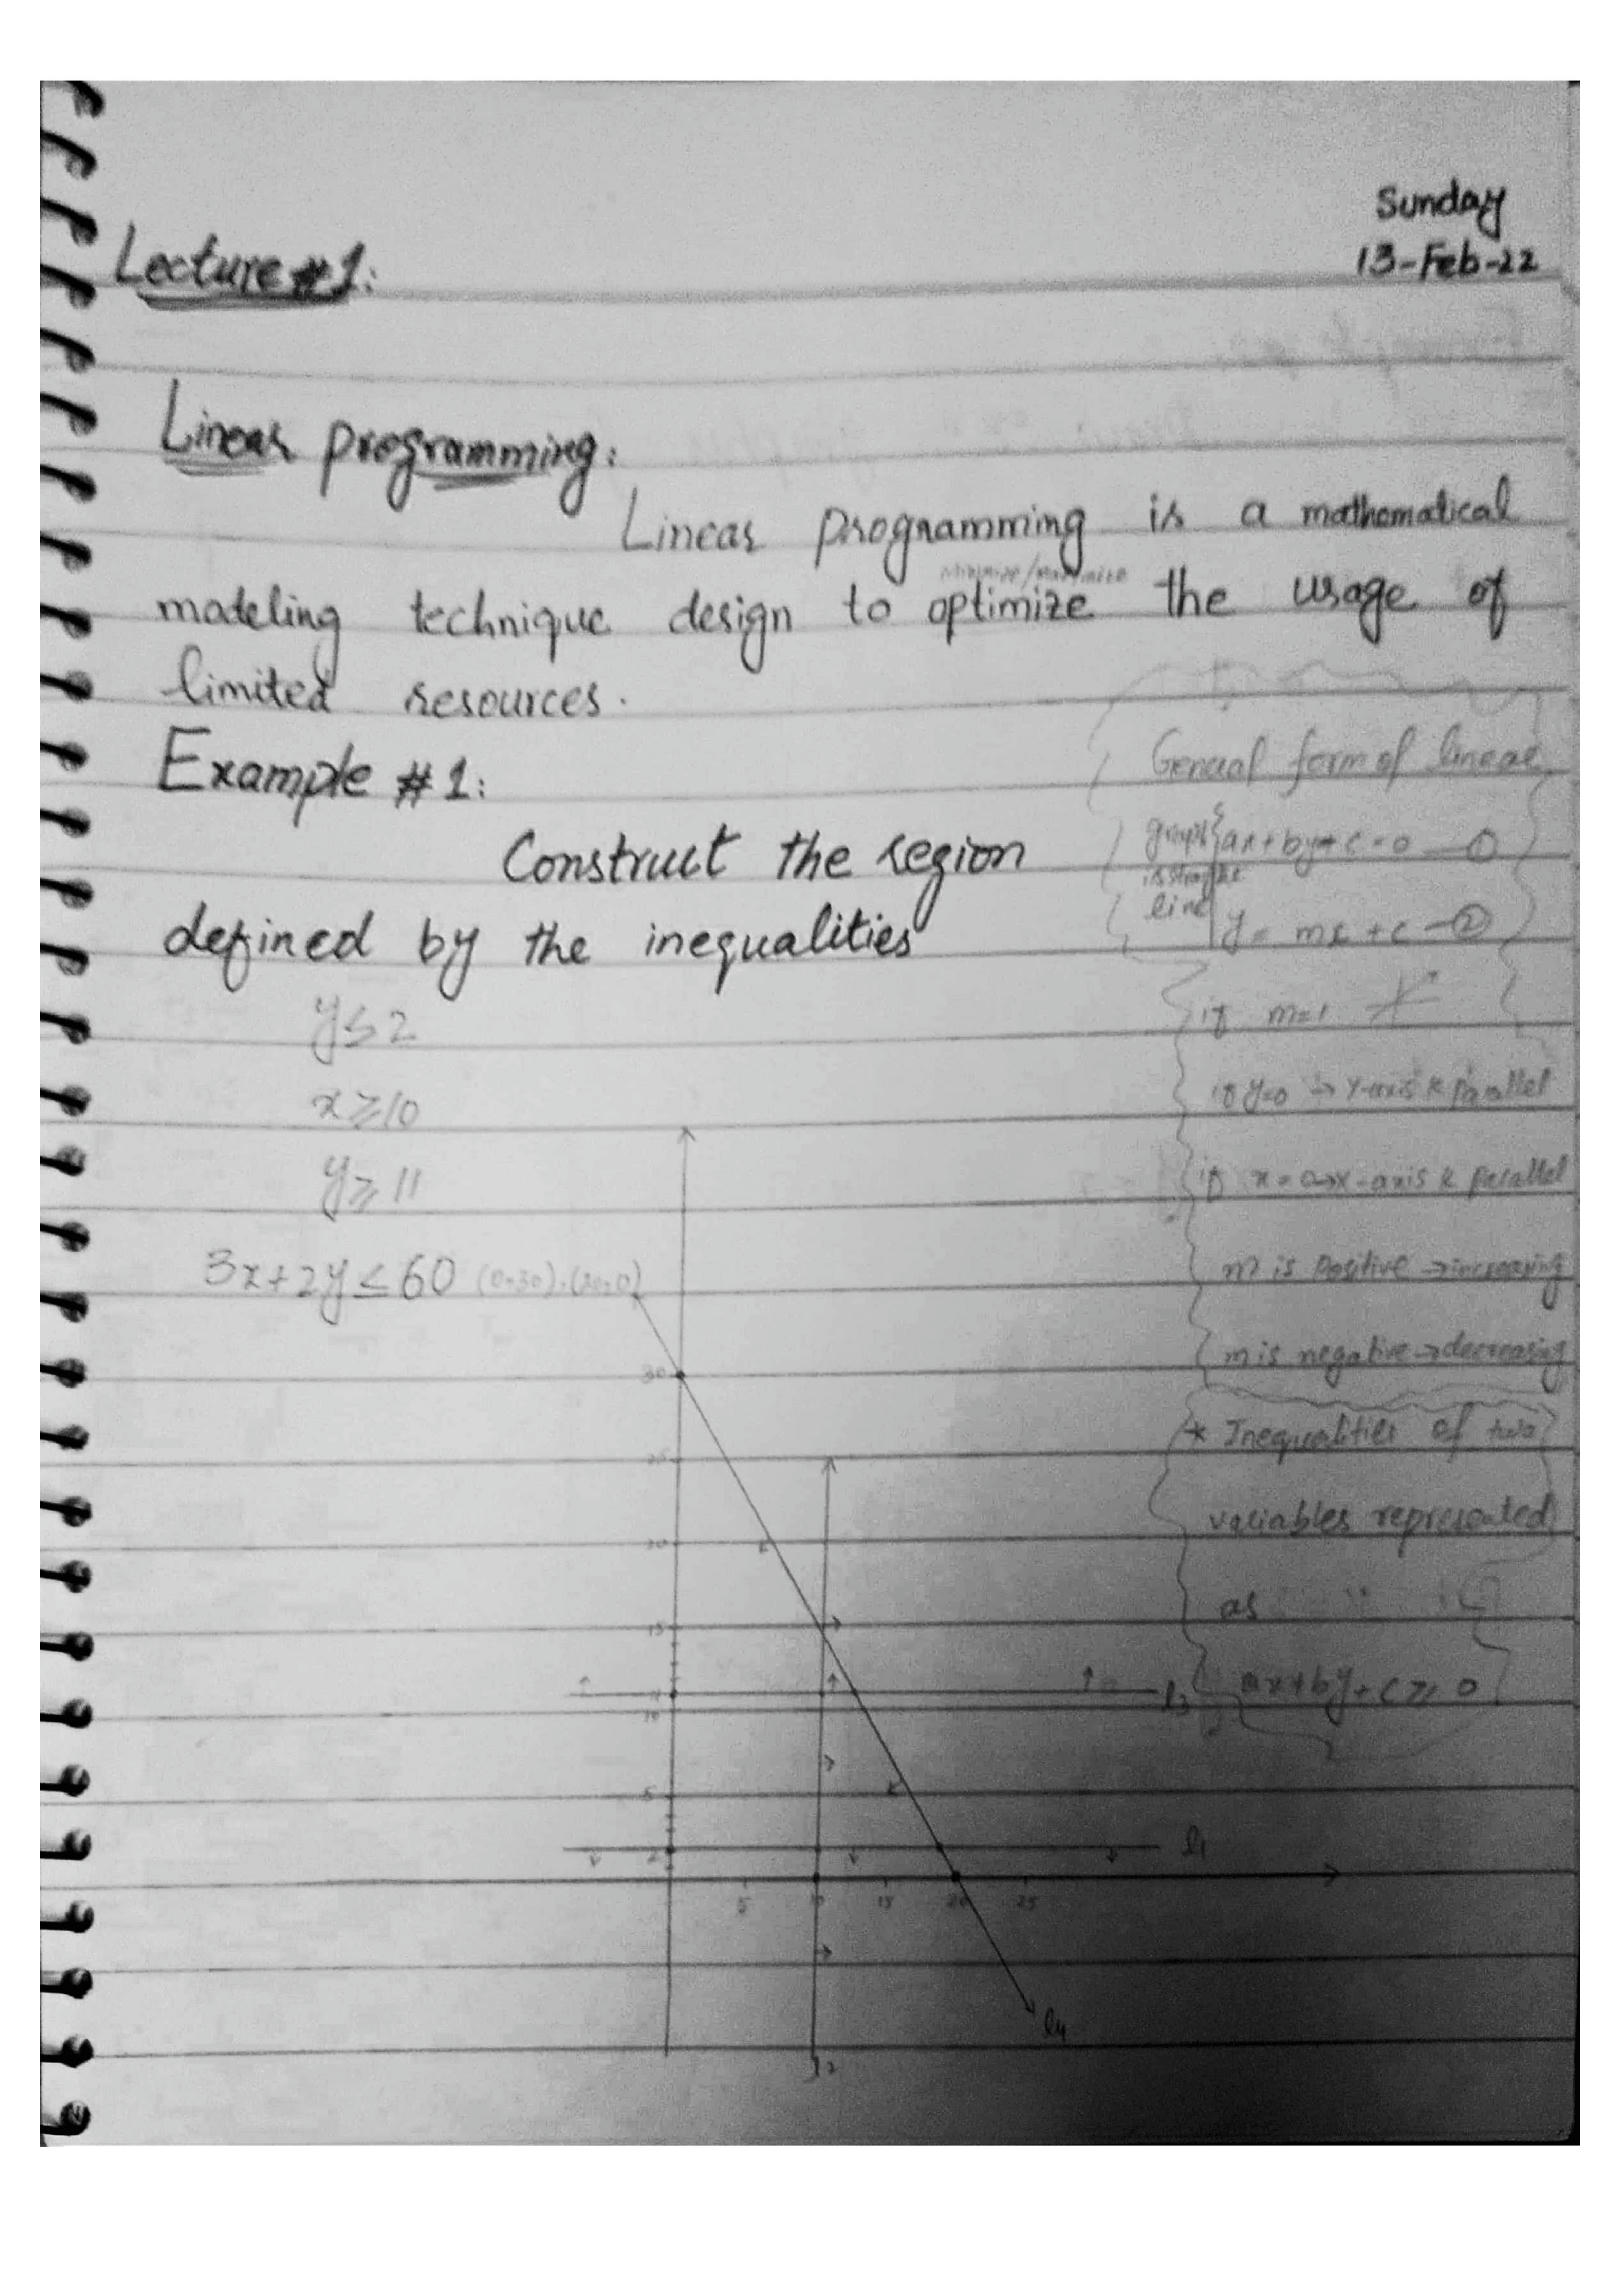 Sunday
13-Feb-22
Lecture #1:
Linear programming:
Linear programming is a mathematical
minimize/maximize
modeling technique design to optimize the usage of
limited resources.
Example #1:
Construct the region
defined by the inequalities
y≤2
x≥10
y≥11
3x+2y≤60 (0,30),(20,0)
General form of linear
graph ax+by+c=0 —①
is straight
line y= mx+c —②
if m=1
if y=0 → y-axis k parallel
if x=0→x-axis k parallel
m is positive →increasing
m is negative→decreasing
* Inequalities of two
variables represented
as
ax+by+c≥0
30
25
20
15
11
10
5
2
5 10 15 20 25
l3
l1
l4
l2